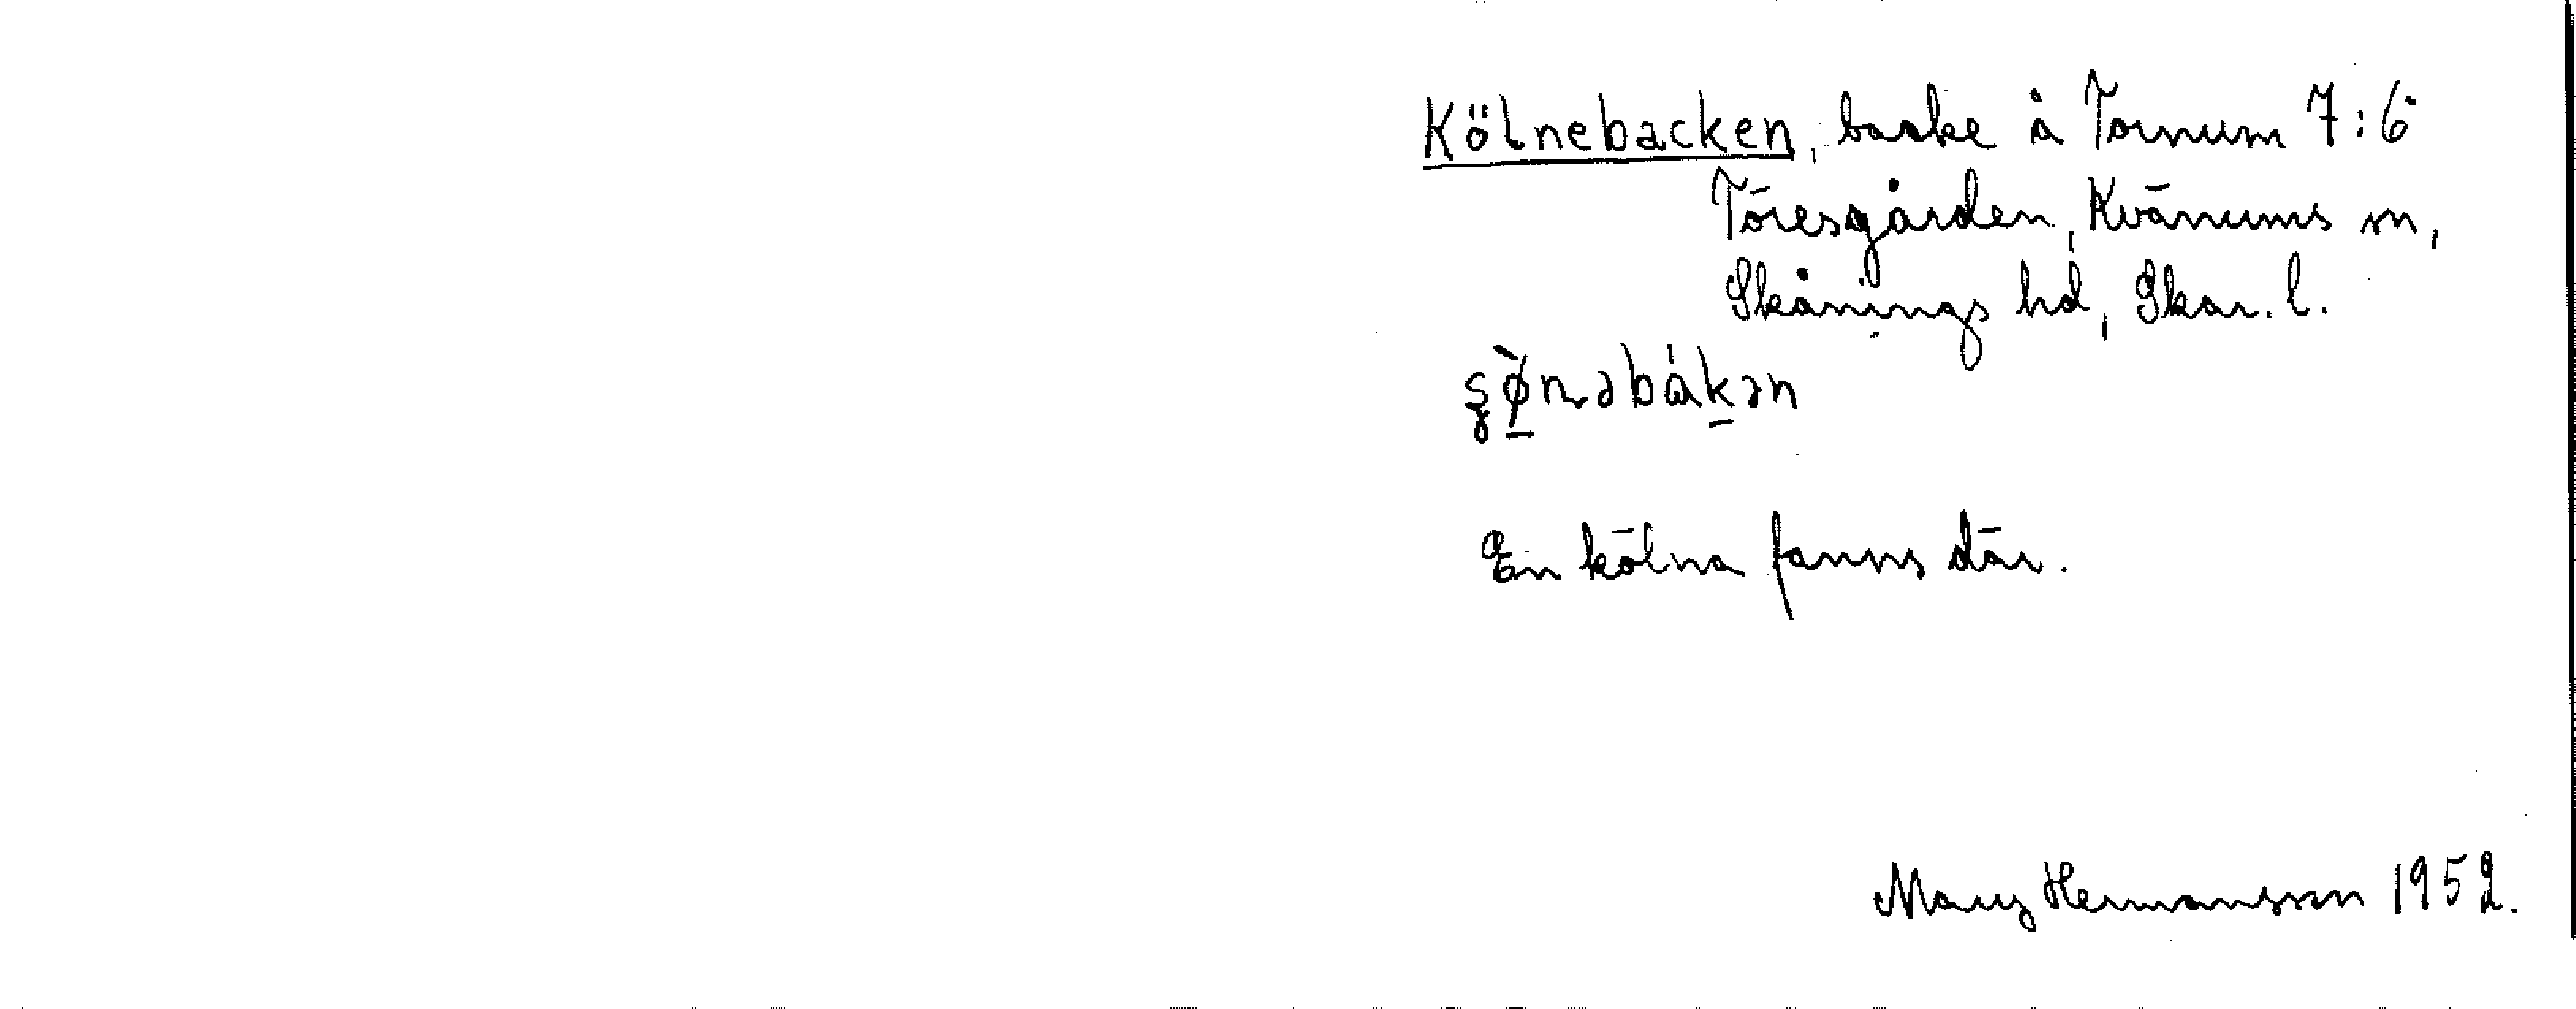 Kölnebacken, backe å Tornum 7:6
Töresgården, Kvänums sn,
Skånings hd, Skar. l.
En kölna fanns där.
Mary Hermansson 1952.